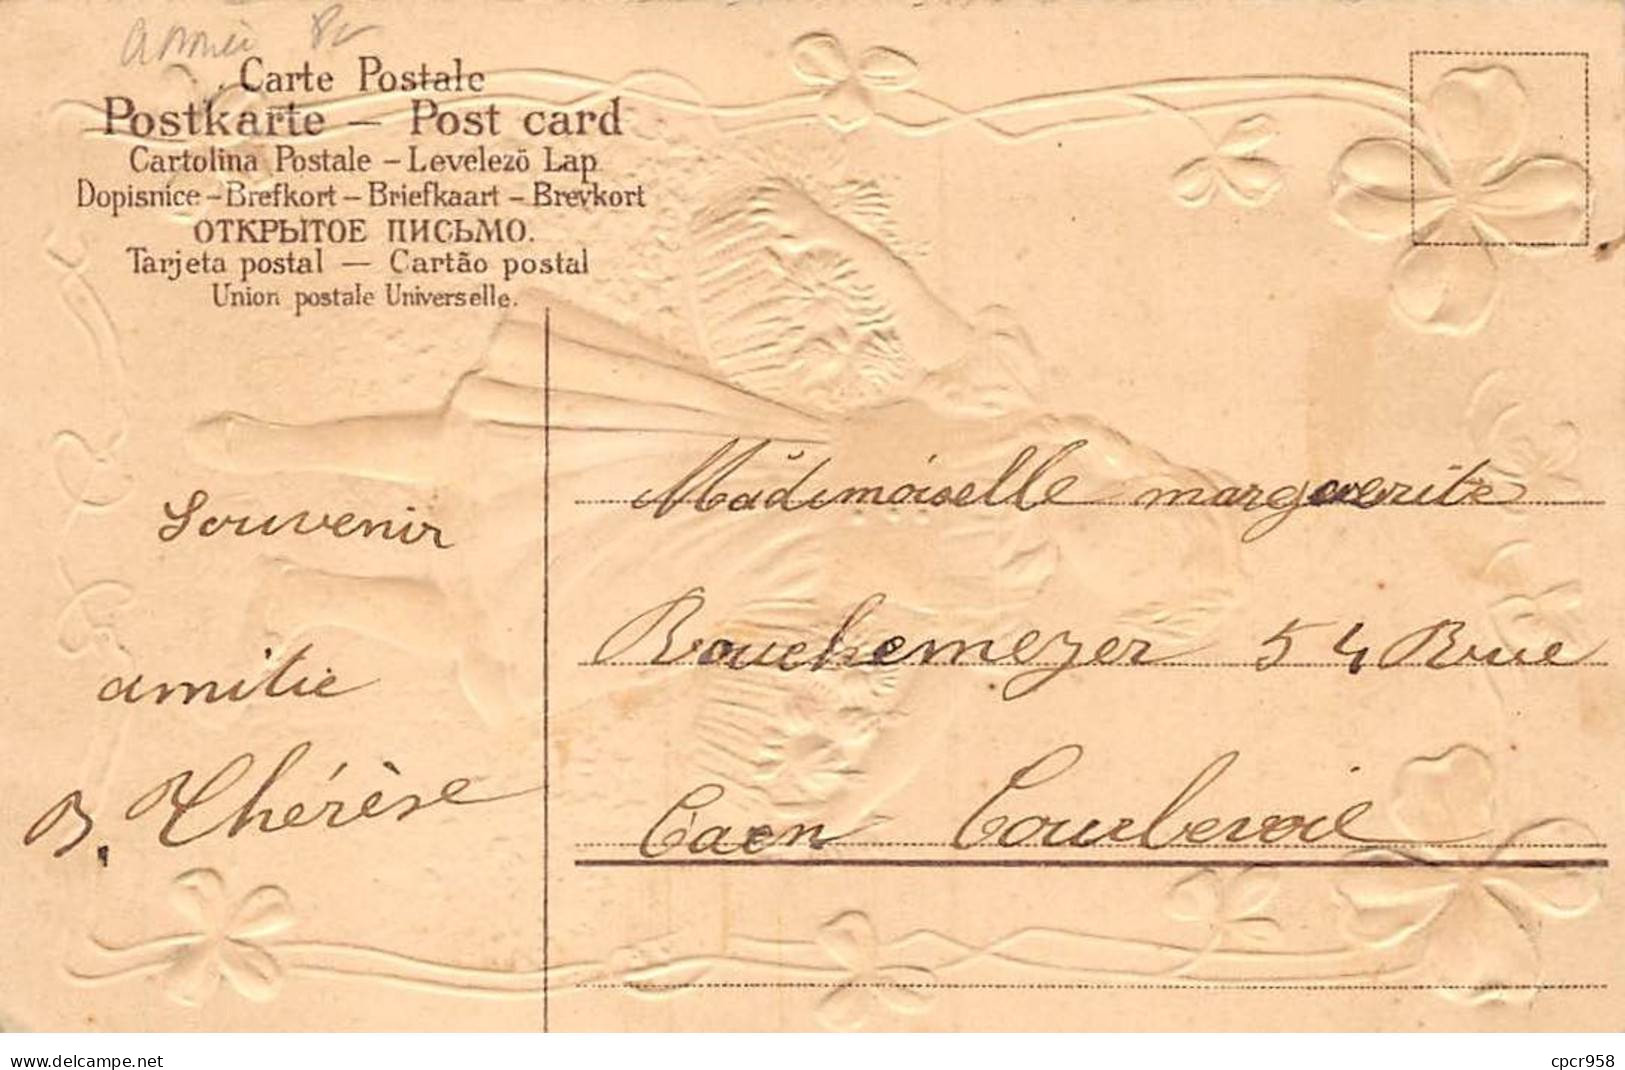 Carte Postale
Postkarte — Post card
Cartolina Postale – Levelező Lap
Dopisnice – Brefkort – Briefkaart – Brevkort
ОТКРЫТОЕ ПИСЬМО.
Tarjeta postal — Cartão postal
Union postale Universelle.
Souvenir
amitie
B. Thérèse
Mademoiselle marguerite
Bouchemeyer 54 Rue
Caen Courbevoie
www.delcampe.net
cpcr958